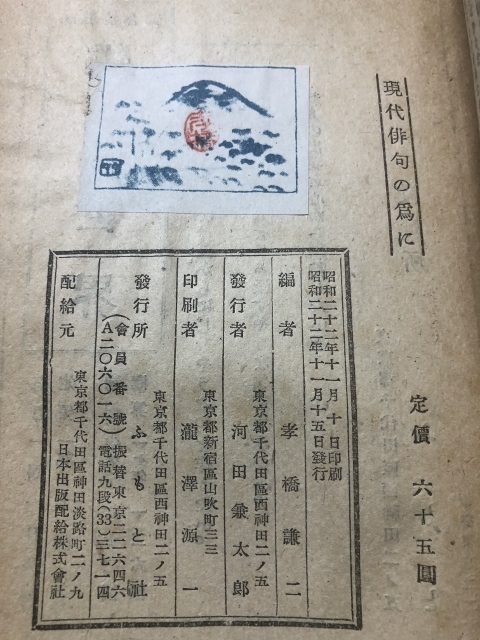 現代俳句の爲に
定價　六十五圓
昭和二十二年十一月十日印刷
昭和二十二年十一月十五日發行
編者　孝橋謙二
東京都千代田區西神田二ノ五
發行者　河田兼太郎
東京都新宿區山吹町三三
印刷者　瀧澤源一
東京都千代田區西神田二ノ五
發行所　ふもと社
（會員番號）振替東京二二六四六
A二〇六〇一六）電話九段（33）三七一四
配給元　東京都千代田區神田淡路町二ノ九
日本出版配給株式會社